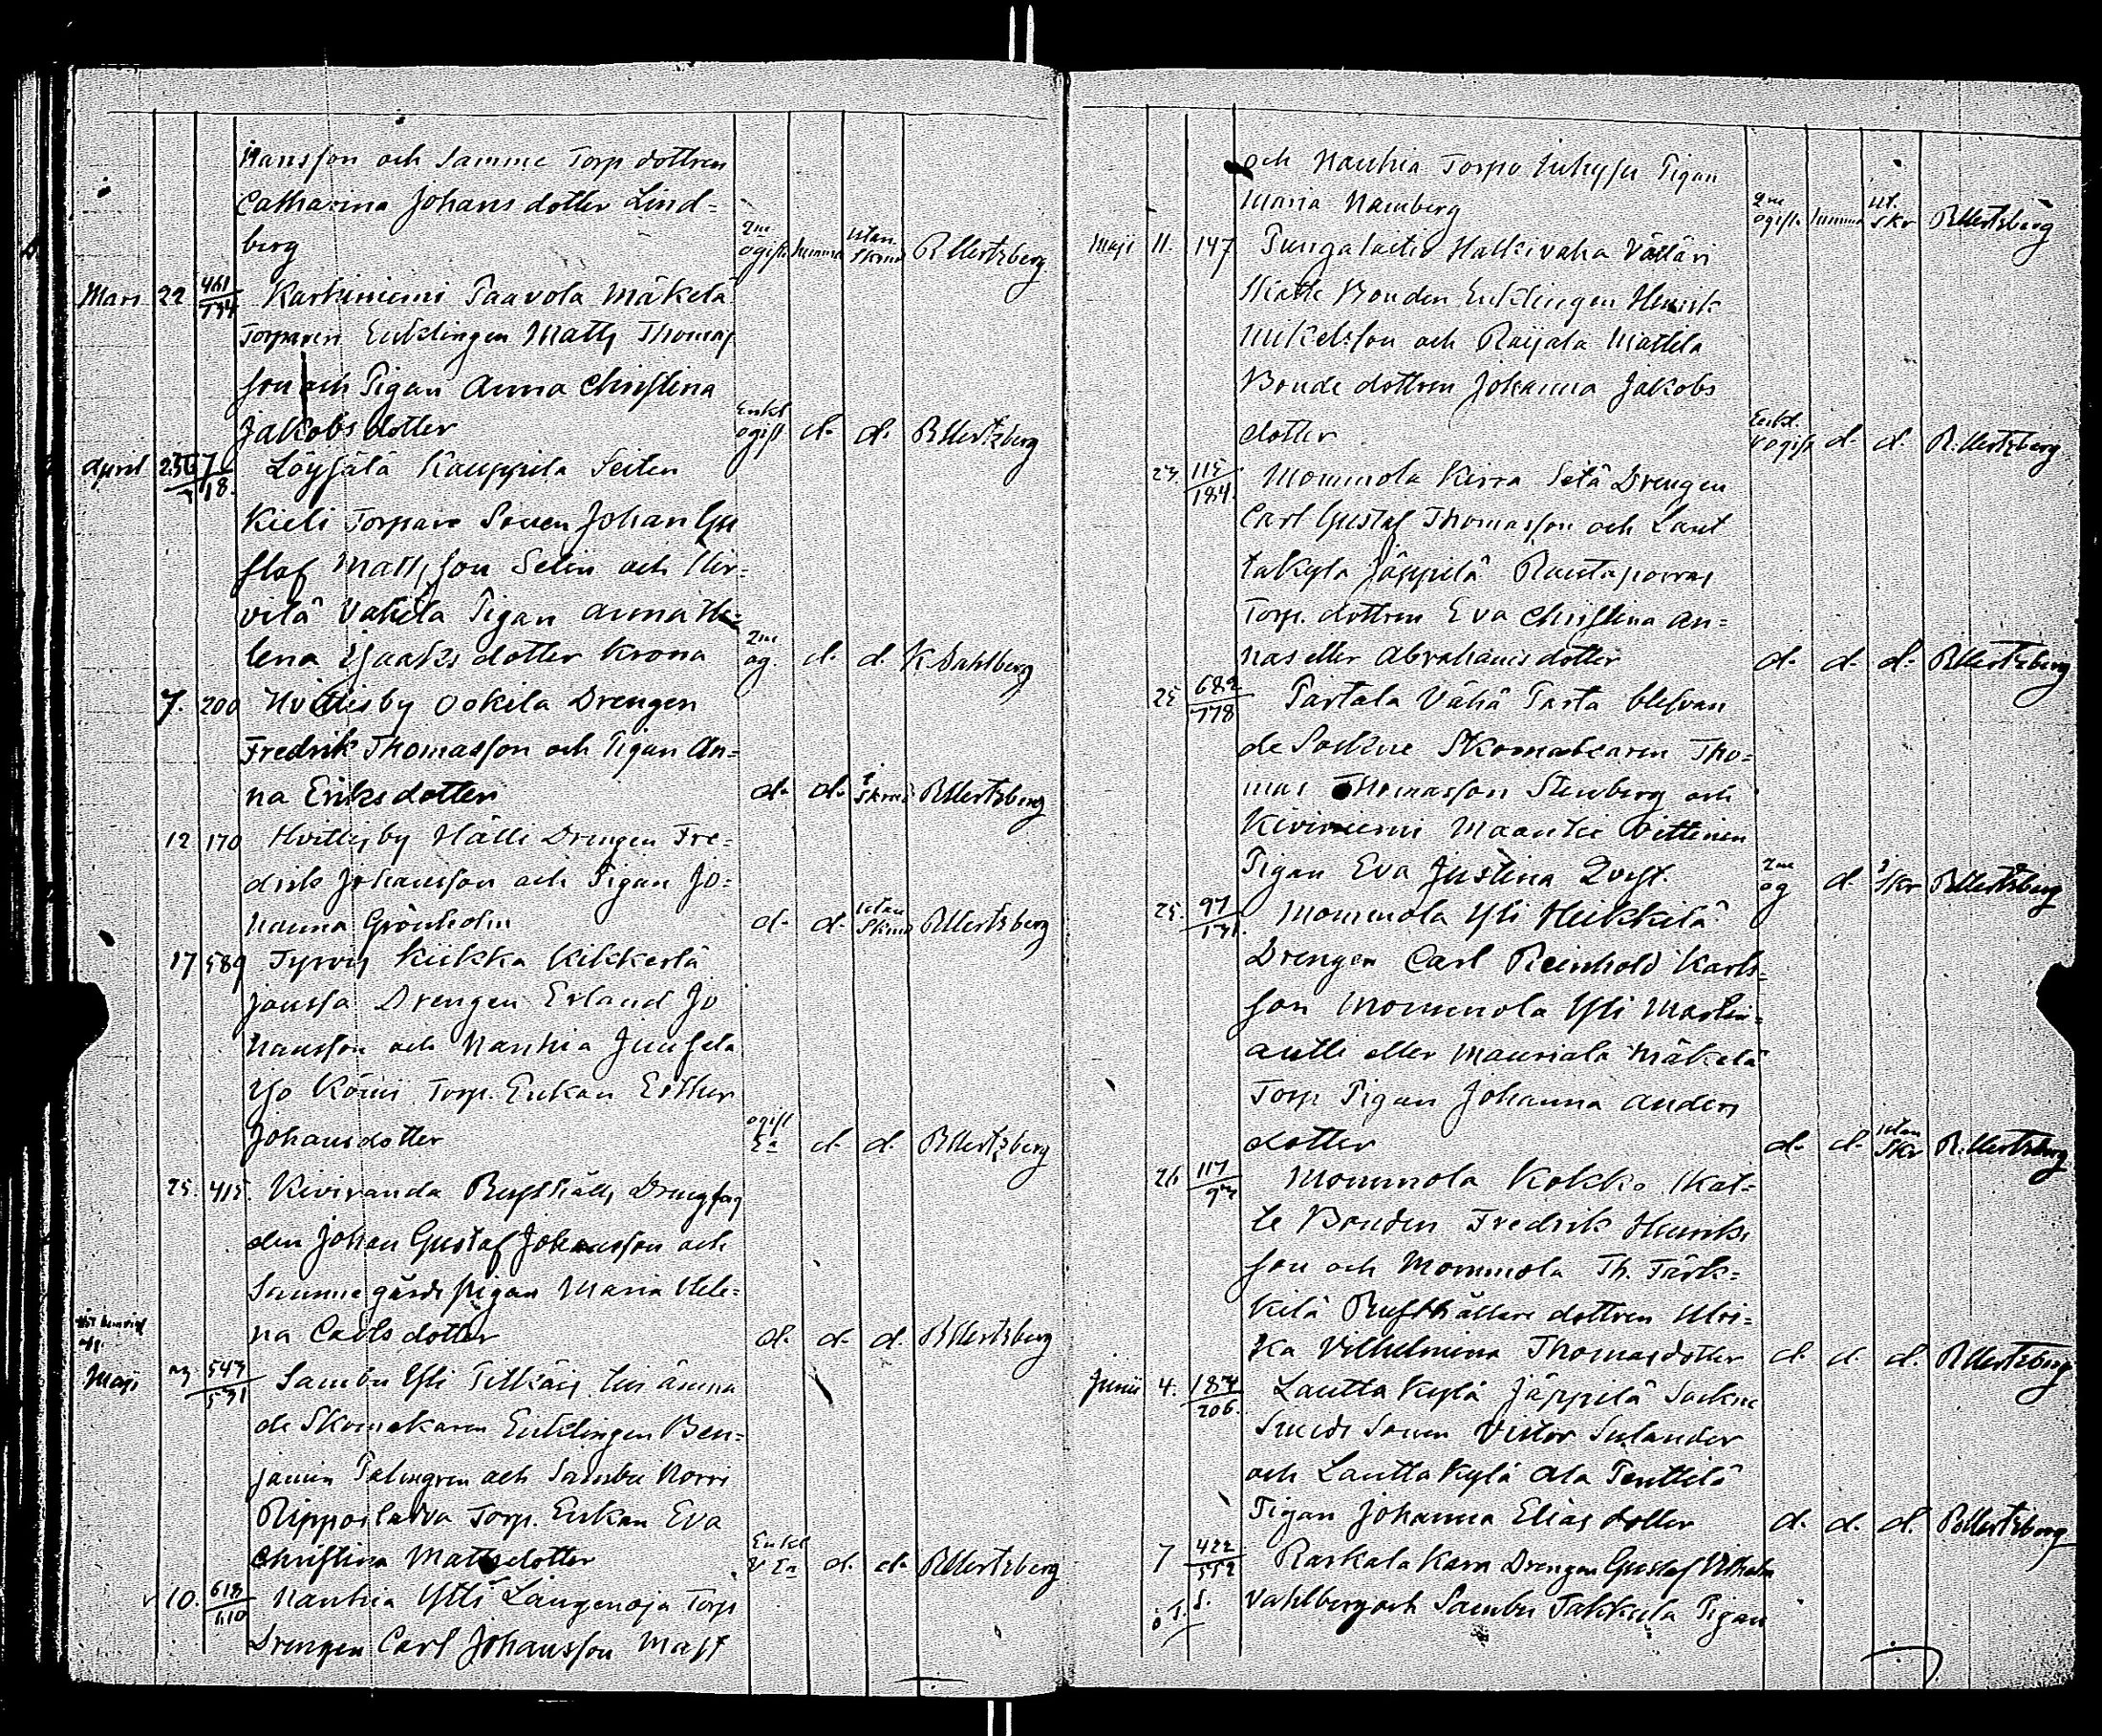 Hansson och Samme Torp dottren
Catharina Johans dotter Lind=
berg 2ne ogifte hemma utan Skrud R Hertzberg
Mars 22 461/774 Karhiniemi Paavola Mäkelä
Torparen Enklingen Matts Thomas
son och Pigan Anna Christina
Jakobs dotter Enkl ogift d. d. R Hertzberg
April Löysälä Kauppila Seiten
Kieli Torpare Sonen Johan Gu
staf Matts son Selin och Hir=
vilä Vahila Pigan Anna He=
lena Isaaks dotter Krona 2ne og. d. d. K. Dahlberg
7. 200 Hvittisby Ookila Drengen
Fredrik Thomasson och Pigan An=
na Eriks dotter d. d. i Skrud R Hertzberg
12 170 Hvittisby Hälli Drengen Fre=
drik Johansson och Pigan Jo=
hanna Grönholm d. d. utan Skrud R Hertzberg
17 589 Tyrvis Kiikka Kikkerlä
Jaussa Drengen Erland Jo
hansson och Nanhia Juusela
Yjo Torp. Enkan Esther
Johansdotter ogift En d. d. R Hertzberg
25. 415. Kiviranda Rusthålls Dreng
den Johan Gustaf Johansson och
Samme gårds pigan Maria Hele=
na Carls dotter d. d. d. R Hertzberg
Maji 547/571 Sambu Yli Pitkäis
de Skomakaren Enklingen Ben=
jamin Palmgren och Sambu Norri
Torp. Enkan Eva
Christina Mattsdotter Enkl & En d. d. R Hertzberg
10. 618/610 Nanhia Ytli Langenoja Torp
Drengen Carl Johansson Mast
och Nanhia Torpo Pigan
Maria Hamberg 2ne ogifte hemma ut. Skr R Hertzberg
Maji 11. 147 Pungalaitio Halkivaha
Skatte Bonden Enklingen Henrik
Mikelsson och Raijala Mattila
Bonde dottren Johanna Jakobs
dotter Enkl. & ogift d. d. R. Hertzberg
115/184. Mommola Kirra Setä Drengen
Carl Gustaf Thomasson och Laut
takylä Jäppilä
Torp. dottren Eva Christina An=
nas eller Abrahams dotter d. d. d. R Hertzberg
25 682/778 Partala Vähä Parta
de Sockne Skomakaren Tho=
mas Thomasson Stenberg och
Kiviniemi Maantie Vittinen
Pigan Eva Justina Qvist. 2ne og d. i Skr R Hertzberg
25. Mommola Yli Heikkilä
Drengen Carl Reinhold Karls=
son Mommola Yli Martin=
antti eller Mauriala Mäkelä
Torp Pigan Johanna Anders
dotter d. d. utan Skr R. Hertzberg
26 Mommola Kokko Skat=
te Bonden Fredrik Henriks
son och Mommola Th. Tärk=
kilä Rusthållare dottren Ulri=
ka Vilhelmina Thomasdotter d. d. d. R Hertzberg
Junii 4. Lautta Kylä Jäppilä Sockne
Smeds Sonen Victor Selander
och Lautta Kylä Ala Penttilä
Pigan Johanna Elias dotter d. d. d. R Hertzberg
7 422/552 Raskala Kara Drengen Gustaf Vilhelm
Vahlberg och Sambu Takkula Pigan